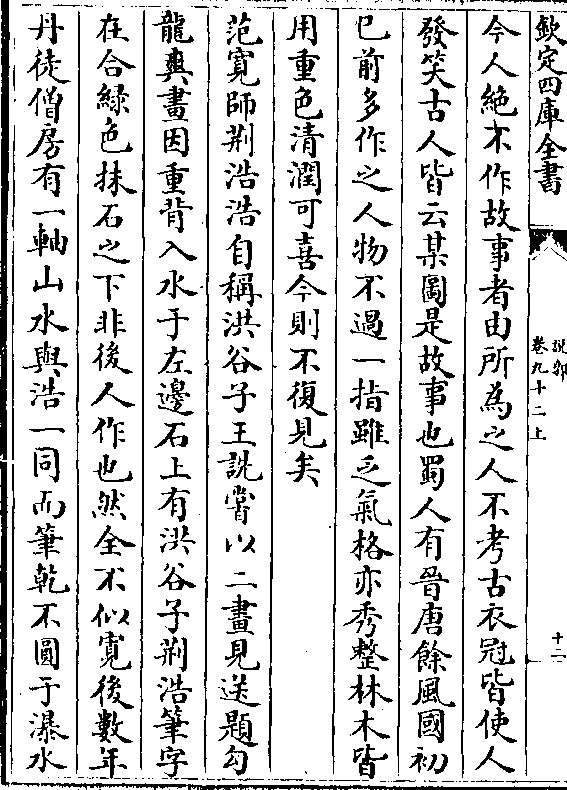 欽定四庫全書
說郛
卷九十二上
十二
今人絶不作故事者由所為之人不考古衣冠皆使人
發笑古人皆云某圖是故事也蜀人有晉唐餘風國初
已前多作之人物不過一指雖乏氣格亦秀整林木皆
用重色清潤可喜今則不復見矣
范寛師荆浩浩自稱洪谷子王詵嘗以二畫見送題勾
龍爽畫因重背入水于左邊石上有洪谷子荆浩筆字
在合綠色抹石之下非後人作也然全不似寛後數年
丹徒僧房有一軸山水與浩一同而筆乾不圓于瀑水